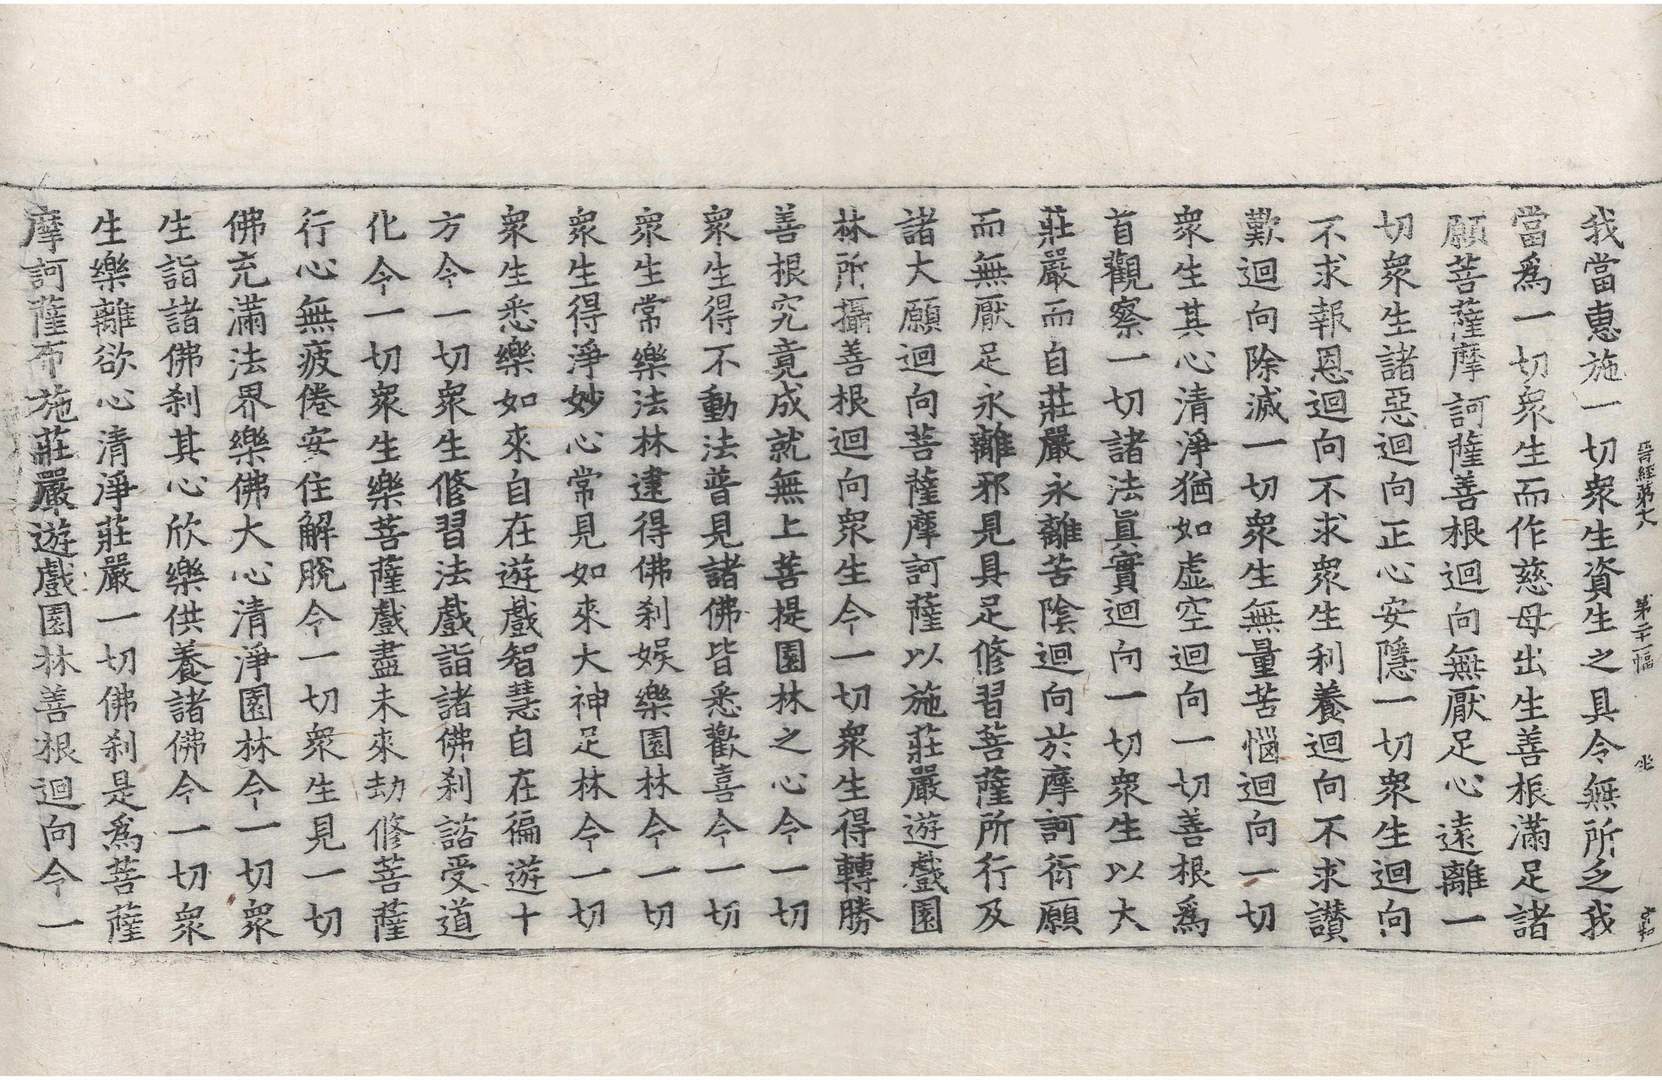 晋經第十八　第二十一幅　坐
我當惠施一切衆生資生之具令無所乏我
當爲一切衆生而作慈母出生善根滿足諸
願菩薩摩訶薩善根迴向無厭足心遠離一
切衆生諸惡迴向正心安隱一切衆生迴向
不求報恩迴向不求衆生利養迴向不求讃
歎迴向除滅一切衆生無量苦惱迴向一切
衆生其心清淨猶如虛空迴向一切善根爲
首觀察一切諸法眞實迴向一切衆生以大
莊嚴而自莊嚴永離苦陰迴向於摩訶衍願
而無厭足永離邪見具足修習菩薩所行及
諸大願迴向菩薩摩訶薩以施莊嚴遊戲園
林所攝善根迴向衆生令一切衆生得轉勝
善根究竟成就無上菩提園林之心令一切
衆生得不動法普見諸佛皆悉歡喜令一切
衆生常樂法林逮得佛刹娛樂園林令一切
衆生得淨妙心常見如來大神足林令一切
衆生悉樂如來自在遊戲智慧自在徧遊十
方令一切衆生修習法戲詣諸佛刹諮受道
化令一切衆生樂菩薩戲盡未來劫修菩薩
行心無疲倦安住解脫令一切衆生見一切
佛充滿法界樂佛大心清淨園林令一切衆
生詣諸佛刹其心欣樂供養諸佛令一切衆
生樂離欲心清淨莊嚴一切佛刹是爲菩薩
摩訶薩布施莊嚴遊戲園林善根迴向令一